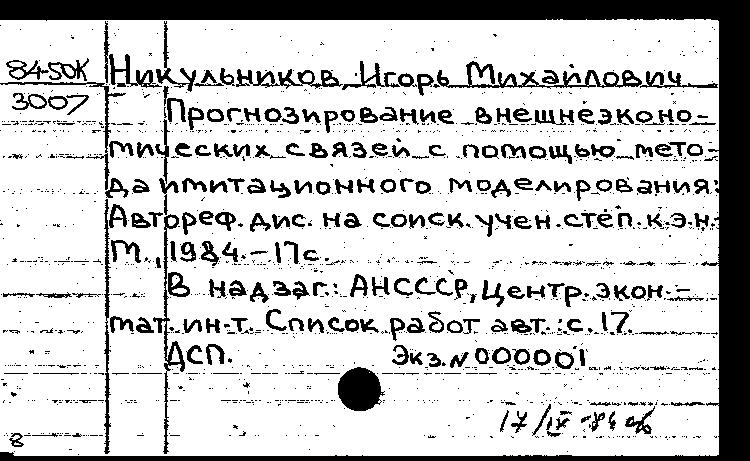 8450К Никульников, Игорь Михайлович.
3007 Прогнозирование внешнеэконо-
мических связей с помощью мето-
да имитационного моделирования:
Автореф. дис. на соиск. учен. степ. к.э.н.-
М., 1984.-17с.
В надзаг.: АНСССР, Центр. экон.-
мат. ин-т. Список работ авт.: с. 17.
ДСП. Экз. N 000001
17/IV-84
8